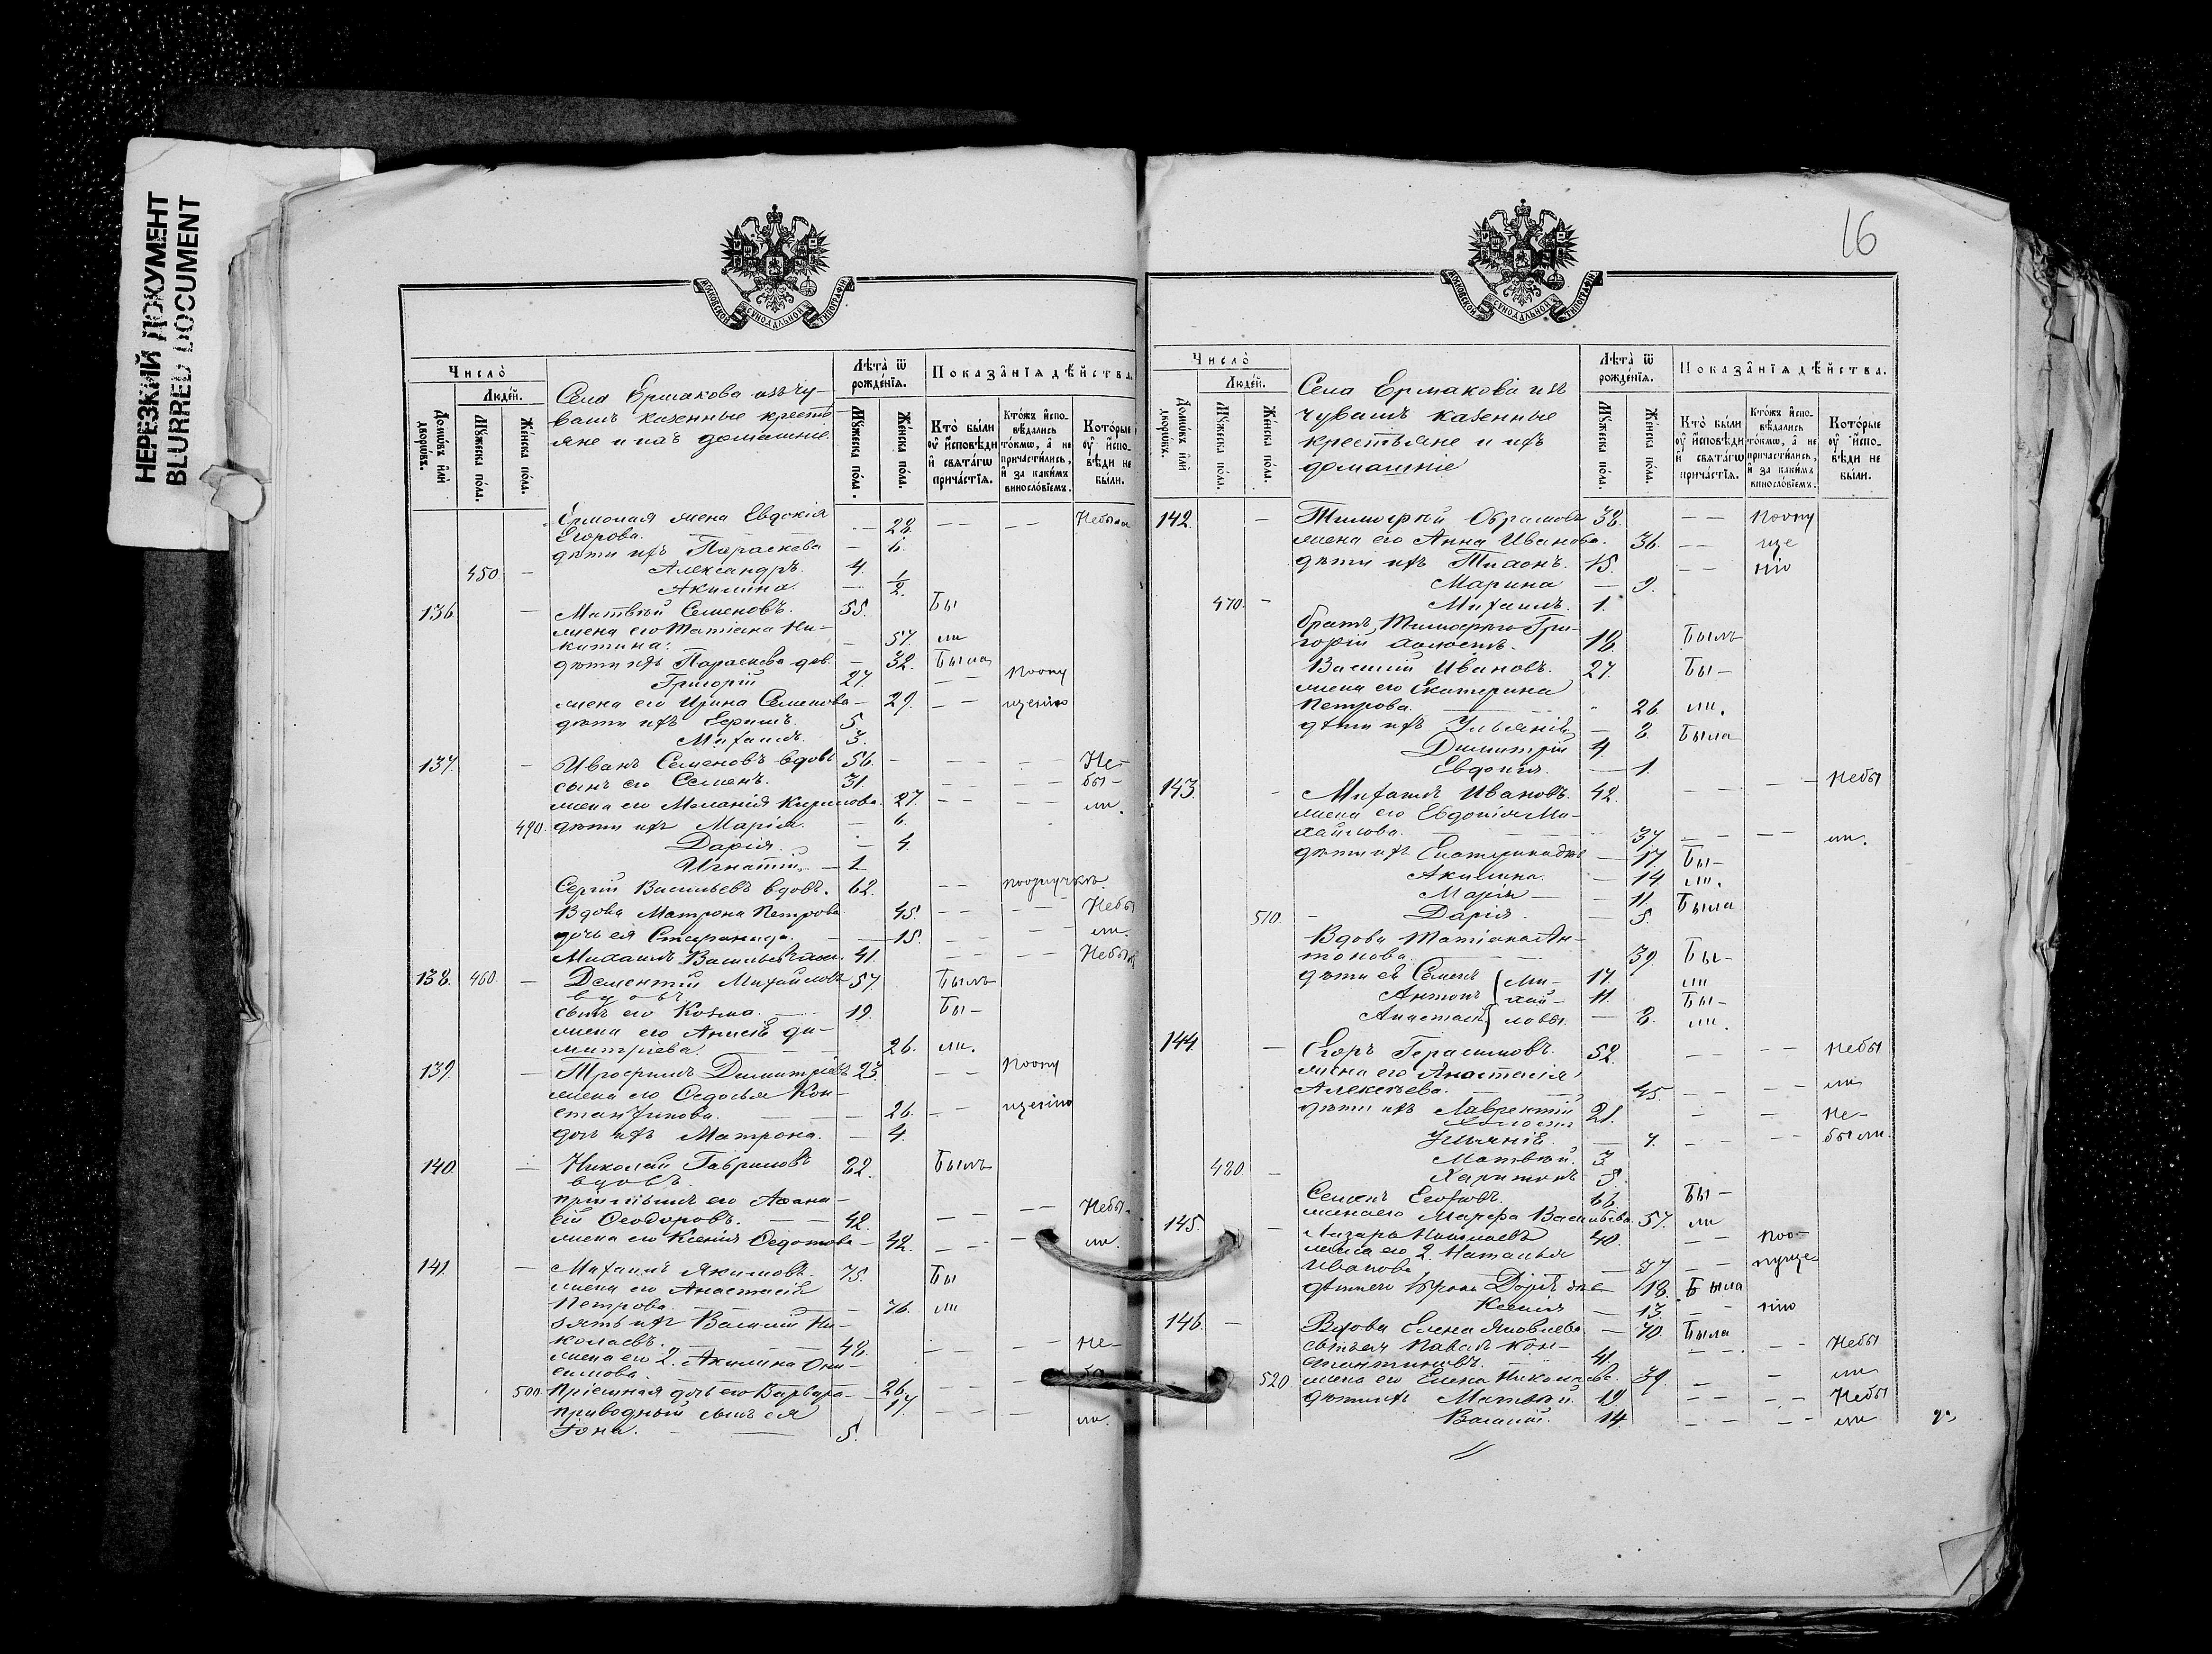 НЕРЕЗКИЙ ДОКУМЕНТ
BLURRED DOCUMENT
МОСКОВСКОЙ СѴНОДАЛЬНОЙ ТИПОГРАФІИ
Число̀
Люде́й.
Домѡ́въ и҆лѝ дворѡ́въ.
Мꙋ́жеска по́ла.
Же́нска по́ла.
Села Ермакова изъ чу-
вашъ казенные кресть
яне и ихъ домашніе.
Лѣта̀ ѿ рожде́нїѧ.
Мꙋ́жеска по́ла.
Же́нска по́ла.
Показа̑нїѧ дѣ́йства.
Кто̀ бы́ли ᲂу҆ и҆сповѣди и҆ свѧта́гѡ прича́стїѧ.
Кто́жъ и҆спо-вѣдались то́кмѡ, а҆ не причасти́лись, и҆ за каки́мъ винослов́їемъ.
Кото́рые ᲂу҆ и҆спо-вѣди не бы́ли.
Ермолая жена Евдокія Небыла
Егорова. — 28.
дѣти ихъ Параскева — 6.
450 — Александръ. 4.
Акилина. — 1/2.
136 — Матвѣй Семеновъ. 55. Бы
жена его Татіана Ни-
китина. — 57 ли
дѣти ихъ Параскева дѣв. — 32. Была
Григорій 27. — — по опу
жена его Ирина Семенова — 29. — — щенію
дѣти ихъ Ефимъ. 5
Михаилъ. 3.
137. — Иванъ Семеновъ вдовъ 56 — — — — Не-
сынъ его Семенъ. 31. — — бы-
жена его Маланія Кирилова. 27. — — — — ли.
490. дѣти ихъ Марія. — 6.
Дарія. — 4.
Игнатій. — 1
Сергій Васильевъ вдовъ. 62. — —
Вдова Матрона Петрова 45. — — — — Небы
дочь ея Стефанида. — 15. — — — — ли.
Михаилъ Васильевъ 41. — — — — Небы
138. 460. — Дементій Михайловъ 57. Былъ
вдовъ
сынъ его Козма. — 19. Бы-
жена его Анисія Ди-
митріева. — — 26. ли.
139. — Трофимъ Димитріевъ 23. — — по опу
жена его Федосья Кон-
стантинова. — — 26. — — щенію
дочь ихъ Матрона. — 4.
140. — Николай Гавриловъ 82. Былъ
вдовъ.
его Афана-
сій Ѳеодоровъ. — — 42. — — — — Небы-
жена его Ксенія Ѳедотова — 42. — — — ли.
141. — Михаилъ Якимовъ. 75. Бы
жена его Анастасія
Петрова. — — — 76. ли
зять ихъ Василій Ни-
колаевъ. — — 48. — — — — Не-
жена его 2. Акилина Они-
симова. — 26. — — —
500. пріемная дочь его Варвара — 17. — — —
приводный сынъ ея ли.
Іона. — 5.
16
МОСКОВСКОЙ СѴНОДАЛЬНОЙ ТИПОГРАФІИ
Число̀
Люде́й.
Домѡ́въ и҆лѝ дворѡ́въ.
Мꙋ́жеска по́ла.
Же́нска по́ла.
Села Ермакова изъ
чувашъ казенные
крестьяне и ихъ
домашніе
Лѣта̀ ѿ рожде́нїѧ.
Мꙋ́жеска по́ла.
Же́нска по́ла.
Показа̑нїѧ дѣ́йства.
Кто̀ бы́ли ᲂу҆ и҆сповѣди и҆ свѧта́гѡ прича́стїѧ.
Кто́жъ и҆спо-вѣдались то́кмѡ, а҆ не причасти́лись, и҆ за каки́мъ винослов́їемъ.
Кото́рые ᲂу҆ и҆спо-вѣди не бы́ли.
142. — Тимофѣй Абрамовъ 38. — — по опу
жена его Анна Иванова. 36. — — ще
дѣти ихъ 15. — — нію
Марина — 9.
470. — Михаилъ. 1.
братъ Тимофѣя Гри-
горій холостъ. 18. Былъ
Василій Ивановъ. 27. Бы-
жена его Екатерина
Петрова. — — 26. ли.
дѣти ихъ Ульянія — 8. Была
Димитрій 4.
Евдокія. — 1.
143. — Михаилъ Ивановъ. 42. — — — Небы
жена его Евдокія Ми-
хайлова. — — 37 — — — — ли.
дѣти ихъ Екатерина — 17. Бы-
Акилина. — 14. ли.
Марія — — 11. Была
510 — Дарія. — 5.
Вдова Татіана Ан-
тонова. — — 39 Бы-
дѣти ея Семенъ Ми- 17. ли
Антонъ хай- 11. Бы-
Анастасія ловы. — 8. ли.
144. — Егоръ Герасимовъ. 52. — — — — Небы
жена его Анастасія
Алексѣева. — — 45. — — — — ли
дѣти ихъ Лаврентій 21. — — Не-
холостъ
Ульянія. — 7. — — — — были.
Матвѣй. 3
480. — Харитонъ 5.
Семенъ Егоровъ. 66. Бы-
145. — жена его Марфа Васильева. 57. ли
Лазарь Николаевъ 40. — — по о-
жена его 2. Наталья
Иванова — 37 — — пуще-
дѣти его — 18. Была
Ксенія — 13. — — нію
146. — Вдова Елена Яковлева — 70. Была
сынъ ея Павелъ Кон-
стантиновъ. — 41. — — — — Небы
520 жена его Елена Николаева. 39. — — ли
дѣти ихъ Матвѣй. 19. — — — — Небы
Василій. 14. — — — — ли